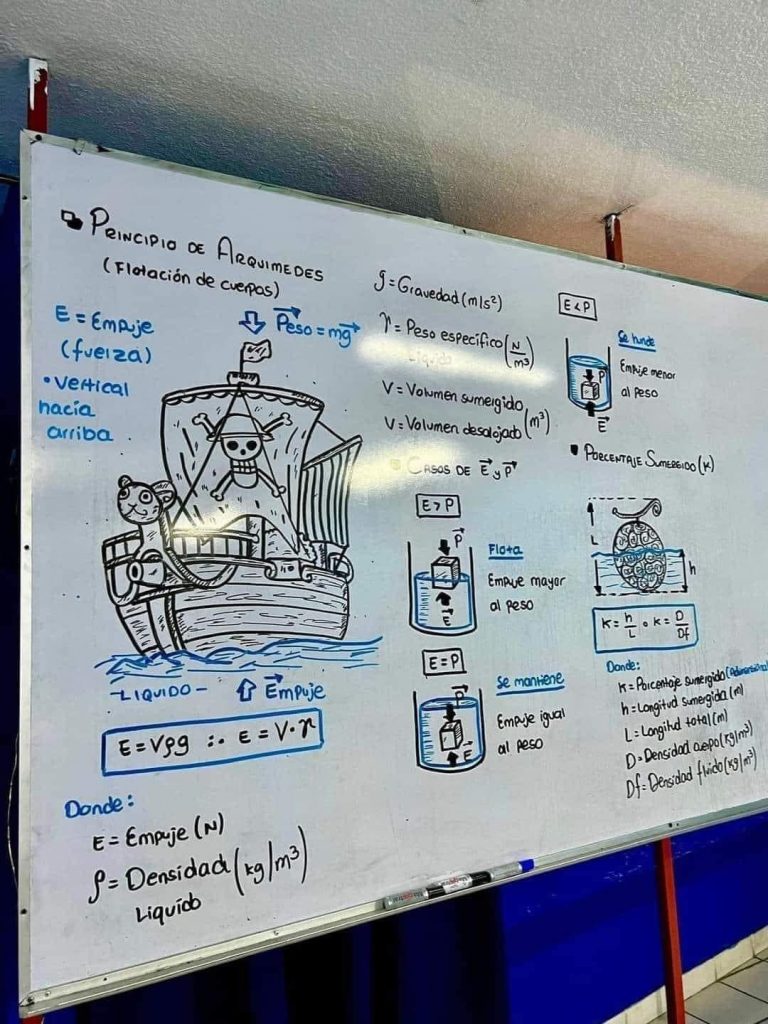 PRINCIPIO DE ARQUIMEDES
(Flotación de cuerpos)
E = Empuje
(fuerza)
• Vertical
hacía
arriba
Peso = mg
-LIQUIDO-
Empuje
E = Vρg ∴ E = V·γ
Donde:
E = Empuje (N)
ρ = Densidad (kg/m³)
Liquido
g = Gravedad (m/s²)
γ = Peso específico (N/m³)
Liquido
V = Volumen sumergido
V = Volumen desalojado (m³)
CASOS DE E y P
E > P
P
Flota
Empuje mayor
al peso
E
E = P
P
Se mantiene
Empuje igual
al peso
E
E < P
Se hunde
P
Empuje menor
al peso
E
PORCENTAJE SUMERGIDO (K)
L
h
K = h/L o K = D/Df
Donde:
K = Porcentaje sumergido
h = Longitud sumergida (m)
L = Longitud total (m)
D = Densidad cuerpo (kg/m³)
Df = Densidad fluido (kg/m³)